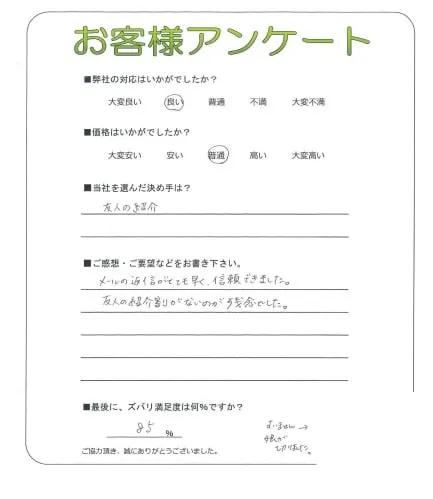 お客様アンケート
■弊社の対応はいかがでしたか?
大変良い 良い 普通 不満 大変不満
■価格はいかがでしたか?
大変安い 安い 普通 高い 大変高い
■当社を選んだ決め手は?
友人の紹介
■ご感想・ご要望などをお書き下さい。
メールの返信がとても早く、信頼できました。
友人の紹介割りがないのが残念でした。
■最後に、ズバリ満足度は何%ですか?
85 %
すいません→
ご協力頂き、誠にありがとうございました。